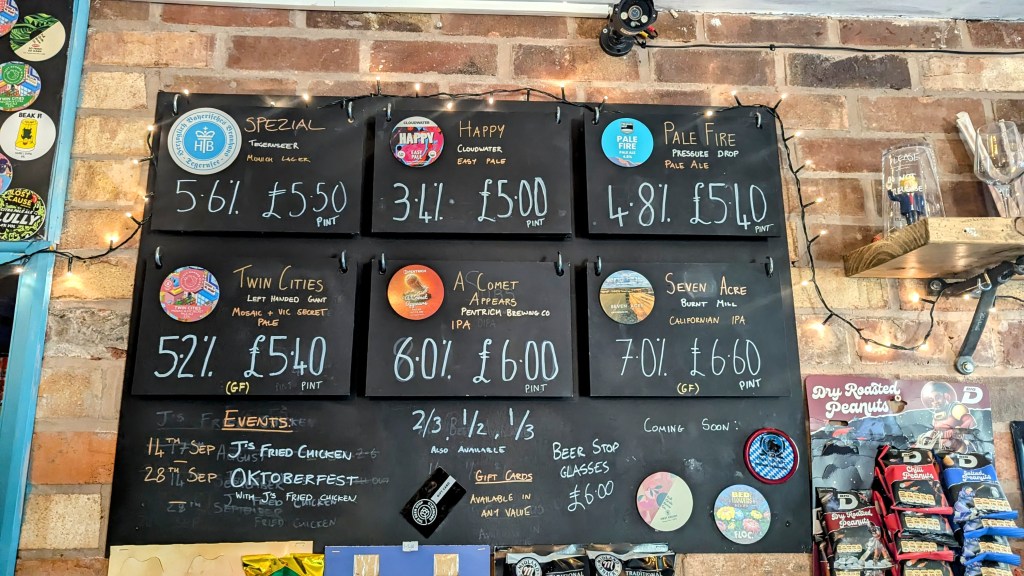 SPEZIAL
TEGERNSEER
MUNICH LAGER
5.6% £5.50
PINT
CLOUDWATER
HAPPY
EASY PALE
HAPPY
CLOUDWATER
EASY PALE
3.4% £5.00
PINT
PALE
FIRE
PALE ALE
4.8%
PALE FIRE
PRESSURE DROP
PALE ALE
4.8% £5.40
PINT
TWIN CITIES
LEFT HANDED GIANT
MOSAIC + VIC SECRET
PALE
5.2% £5.40
(GF) PINT
A COMET
APPEARS
PENTRICH BREWING CO
IPA
6.0% £6.00
PINT
SEVEN ACRE
BURNT MILL
CALIFORNIAN IPA
7.0% £6.60
(GF) PINT
EVENTS:
14TH SEP J'S FRIED CHICKEN
28TH SEP OKTOBERFEST
WITH J'S FRIED CHICKEN
2/3, 1/2, 1/3
ALSO AVAILABLE
GIFT CARDS
AVAILABLE IN
ANY VALUE
BEER STOP
GLASSES
£6.00
COMING SOON:
BEAK
PLEASE
Dry Roasted
Peanuts